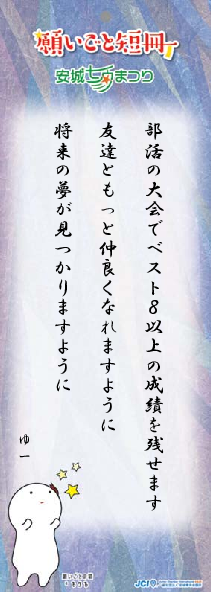 願いごと短冊
安城七夕まつり
部活の大会でベスト8以上の成績を残せます
友達ともっと仲良くなれますように
将来の夢が見つかりますように
ゆー
JCI